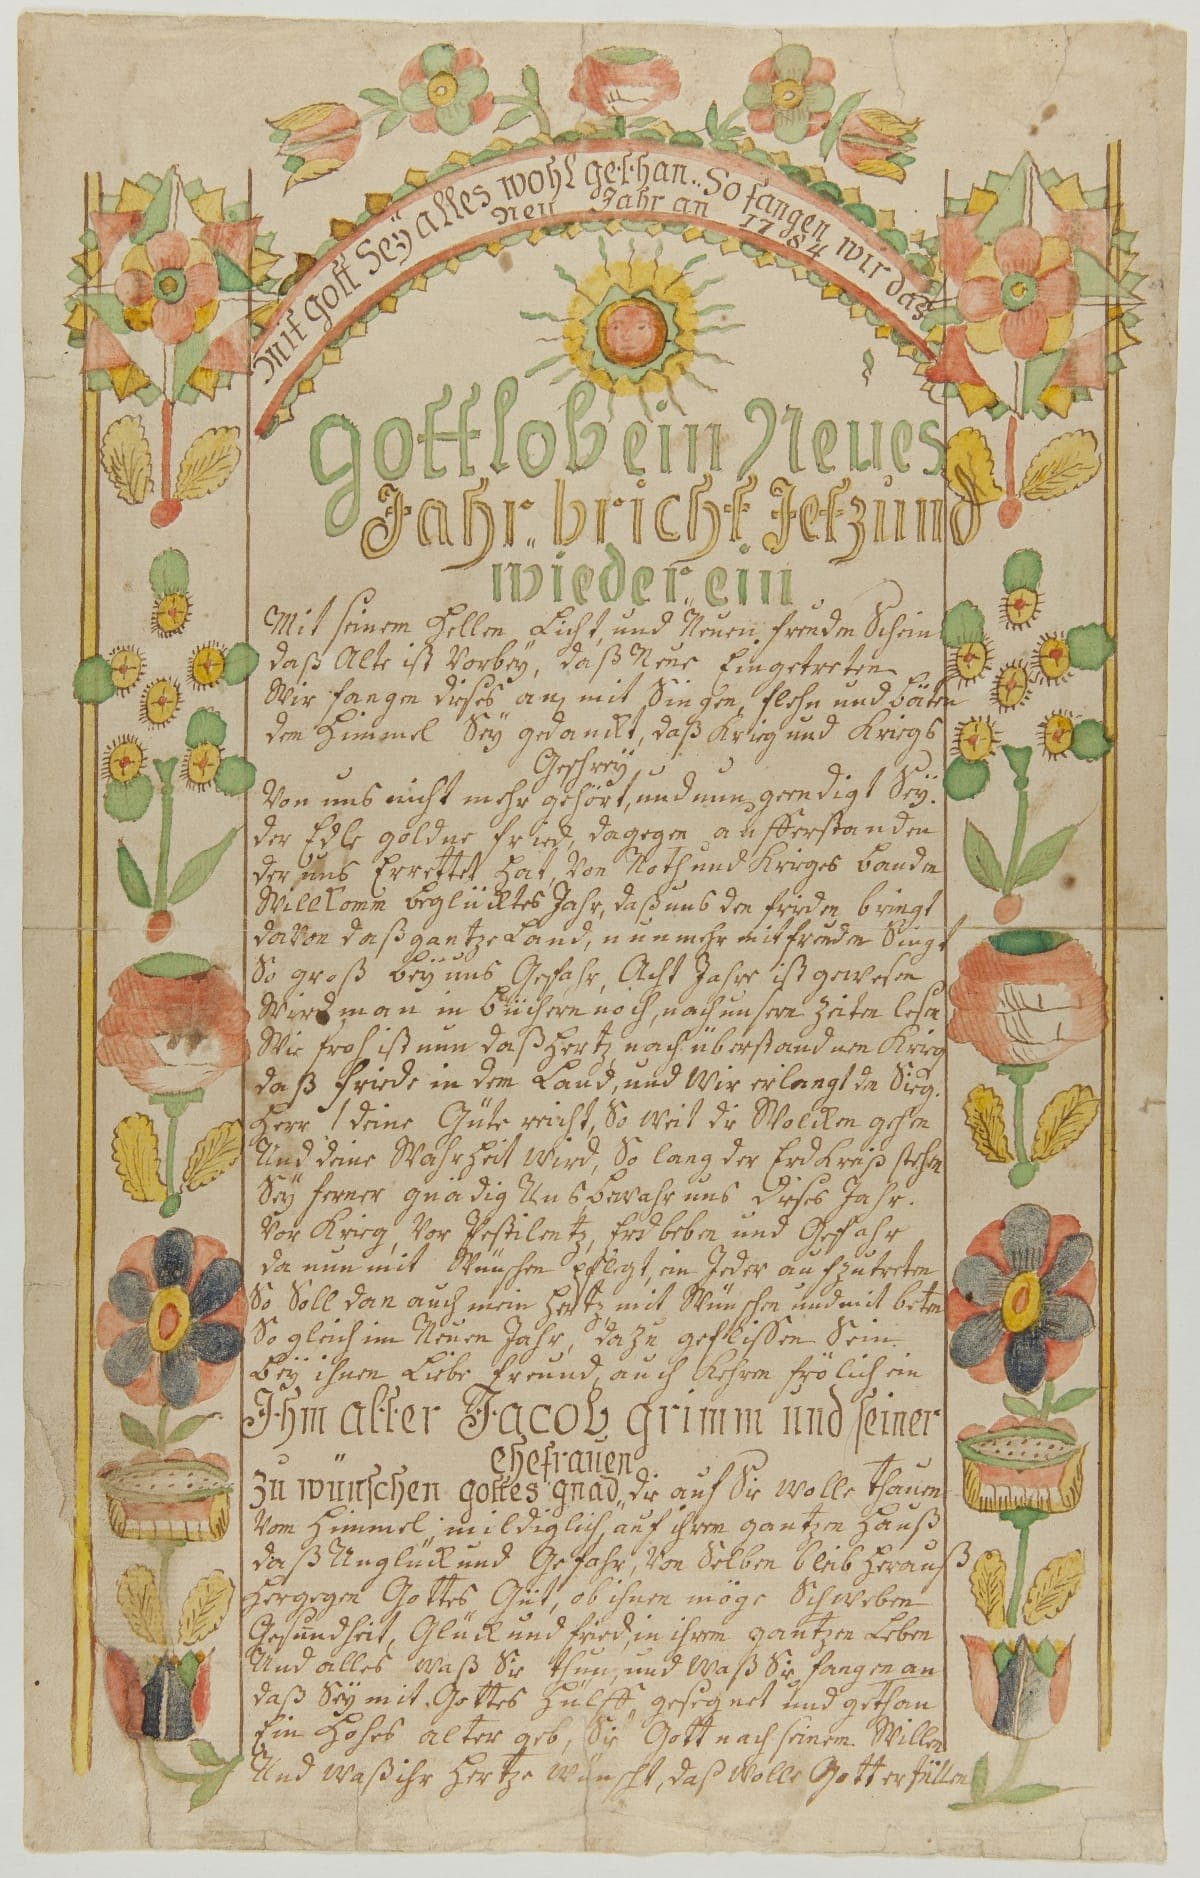 Mit gott Seÿ alles wohl gethan.. So fangen wir das
Neu Jahr an 1784
gottlob ein Neues
Jahr.. bricht Jetzund
wieder ein
Mit seinem Hellen Licht, und Neuen freuden Schein
daß Alte ist Vorbeÿ, daß Neue Eingetreten
Wir fangen dieses an, mit Singen, flehn und bäten
dem Himmel Seÿ gedanckt, daß Krieg und Kriegs
Geschreÿ
Von uns nicht mehr gehört, und nun geendigt Seÿ.
der Edle goldne fried, dagegen aufferstanden
der uns Errettet Hat, Von Noth und Krieges banden
Willkomm beglücktes Jahr, daß uns den frieden bringt
davon daß gantze Land, nunmehr mit freuden Singt
So groß beÿ uns Gefahr, Acht Jahre ist gewesen
Wird man in büchern noch, nach unsern Zeiten lesen
Wie froh ist nun daß Hertz nach überstandnen Krieg
daß friede in dem Land, und Wir erlangt den Sieg.
Herr! deine Güte reicht, So weit die Wolcken gehen
Und deine Wahrheit Wird, So lang der Erdkreiß stehen
Seÿ ferner gnädig Uns bewahr uns dieses Jahr.
Vor Krieg, Vor Pestilentz, Erdbeben und Gefahr
da nun mit Wünschen pflegt, ein Jeder aufzutreten
So Soll dan auch mein Hertz mit Wünschen und mit beten
So gleich im Neuen Jahr, dazu geflissen Sein
beÿ ihnen Liebe freund, auch Kehren frölich ein
Ihm alter Jacob grimm und seiner
ehefrauen
Zu wünschen gottes gnad, die auf Sie wolle thauen
Vom Himmel mildiglich, auf ihrem gantzen Hauß
daß Unglück und Gefahr, Von Selben bleib Herauß
Hergegen Gottes Güt, ob ihnen möge Schweben
Gesundheit, Glück und fried, in ihrem gantzen Leben
Und alles waß Sie thun, und waß Sie fangen an
daß Seÿ mit Gottes Hülff, gesegnet und gethan
Ein Hohes alter geb, Sie Gott nach seinem Willen
Und waß ihr Hertze Wünscht, daß Wolle Gott erfüllen